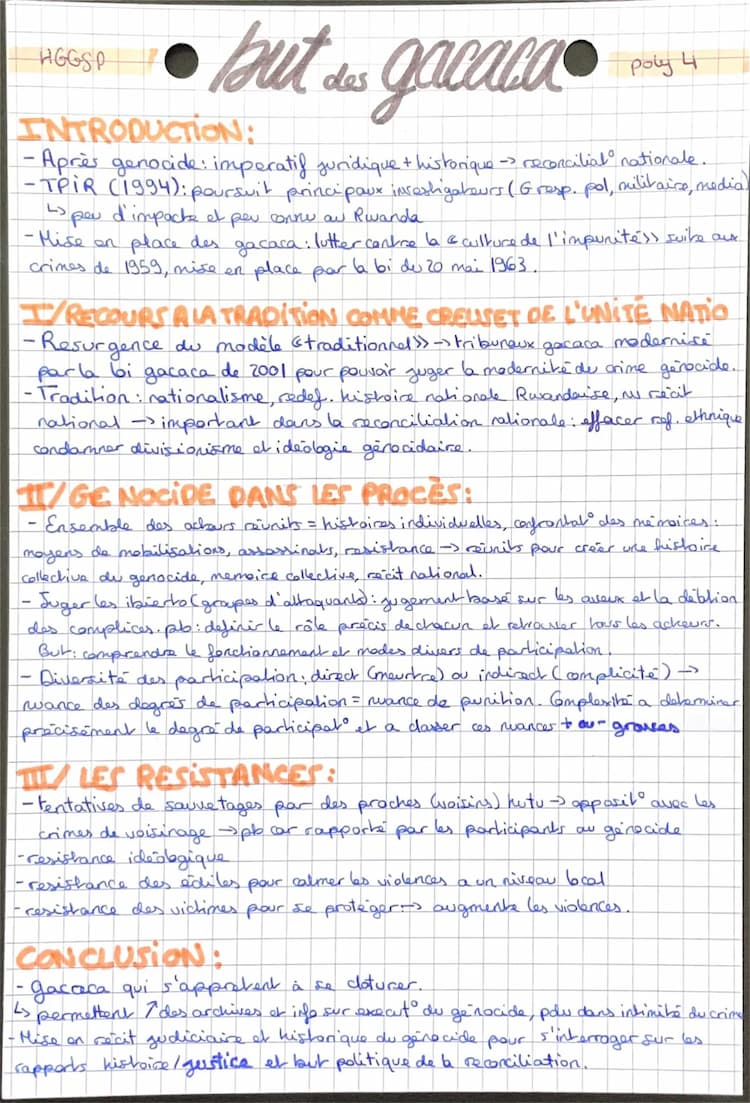 HGGSP
but des gacaca
poly 4
INTRODUCTION:
- Après genocide: imperatif juridique + historique -> reconciliat° nationale.
- TPIR (1994): poursuit principaux investigateurs (G resp. pol, militaire, media)
↳ peu d'impacte et peu connu au Rwanda
- Mise en place des gacaca: lutter contre la « culture de l'impunité» suite aux
crimes de 1959, mise en place par la loi du 20 mai 1963.
I/RECOURS A LA TRADITION COMME CREUSET DE L'UNITÉ NATIO
- Resurgence du modèle «traditionnel» -> tribunaux gacaca modernisé
par la loi gacaca de 2001 pour pouvoir juger la modernité du crime génocide.
- Tradition: nationalisme, redef. histoire nationale Rwandaise, nv récit
national -> important dans la reconciliation nationale: effacer ref. ethnique
condamner divisionisme et idéologie génocidaire.
II/ GENOCIDE DANS LES PROCÈS:
- Ensemble des acteurs réunits = histoires individuelles, confrontat° des mémoires:
moyens de mobilisations, assassinats, resistance -> réunits pour créer une histoire
collective du genocide, memoire collective, récit national.
- Juger les ibiterto (groupes d'attaquants): jugement basé sur les aveux et la délation
des complices. pb: definir le rôle précis de chacun et retrouver tous les acteurs.
But: comprendre le fonctionnement et modes divers de participation.
- Diversité des participation: direct (meurtre) ou indirect (complicité) ->
nuance des degrés de participation = nuance de punition. Complexité a determiner
précisément le degré de participat° et a classer ces nuances + ou - graves
III/ LES RESISTANCES:
- tentatives de sauvetages par des proches (voisins) hutu -> opposit° avec les
crimes de voisinage -> pb car rapporté par les participants au génocide
- resistance idéologique
- resistance des édiles pour calmer les violences a un niveau local
- resistance des victimes pour se protéger -> augmente les violences.
CONCLUSION:
- gacaca qui s'appretent à se cloturer.
↳ permettent ↗ des archives et info sur execut° du génocide, pdv dans intimité du crime
- Mise en récit judiciaire et historique du génocide pour s'interroger sur les
rapports histoire/justice et but politique de la reconciliation.